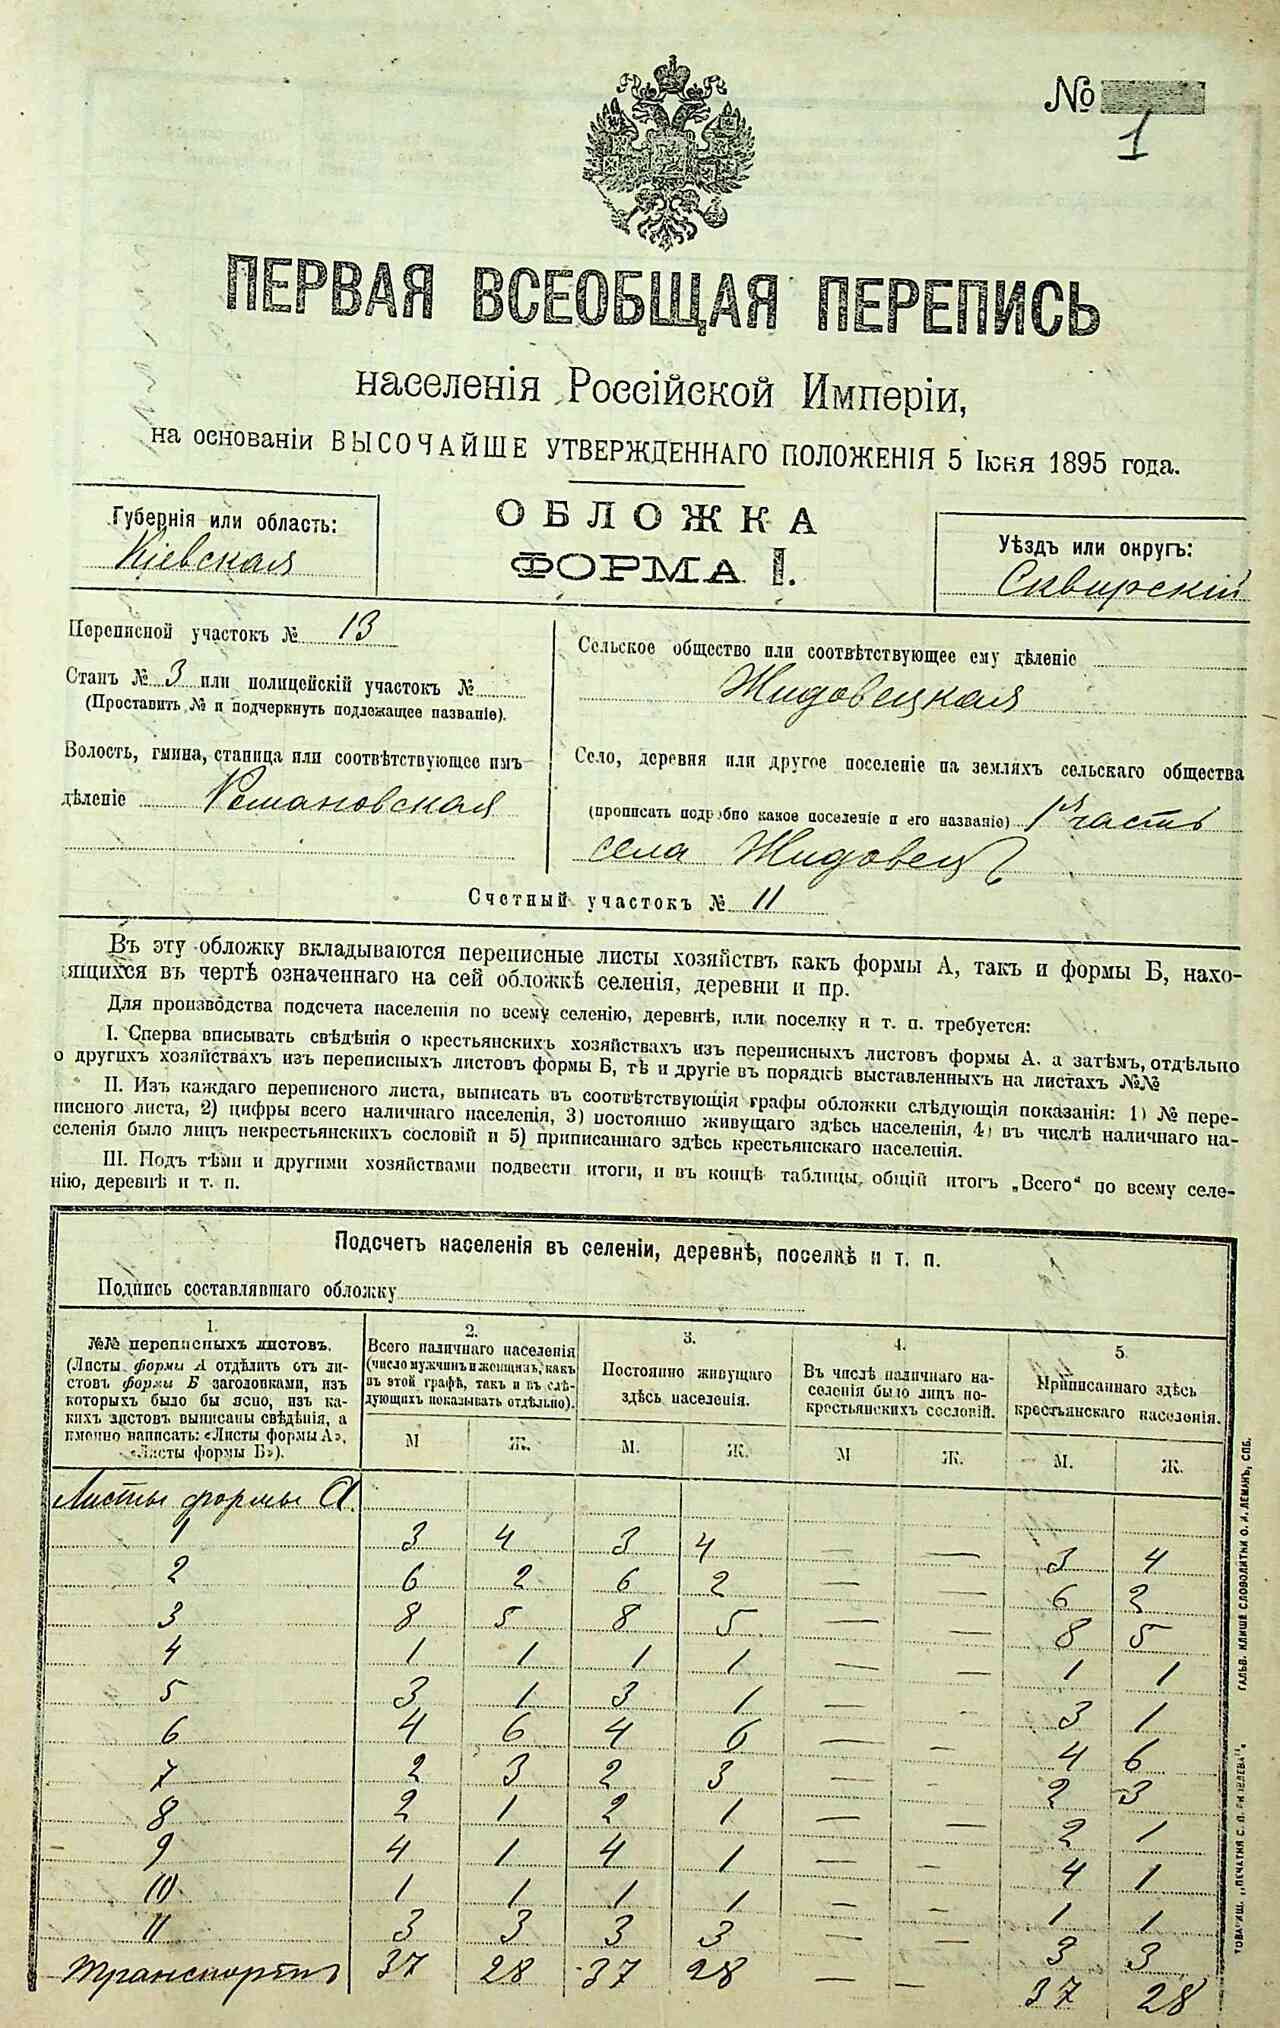 №
1
ПЕРВАЯ ВСЕОБЩАЯ ПЕРЕПИСЬ
населенія Россійской Имперіи,
на основаніи ВЫСОЧАЙШЕ УТВЕРЖДЕННАГО ПОЛОЖЕНІЯ 5 Іюня 1895 года.
Губернія или область:
Кіевская
ОБЛОЖКА
ФОРМА I.
Уѣздъ или округъ:
Сквирскій
Переписной участокъ № 13
Станъ № 3 или полицейскій участокъ №
(Проставить № и подчеркнуть подлежащее названіе).
Волость, гмина, станица или соотвѣтствующее имъ
дѣленіе Романовская
Сельское общество или соотвѣтствующее ему дѣленіе
Жидовецкая
Село, деревня или другое поселеніе на земляхъ сельскаго общества
(прописать подробно какое поселеніе и его названіе) 1я часть
села Жидовецъ
Счетный участокъ № 11
Въ эту обложку вкладываются переписные листы хозяйствъ какъ формы А, такъ и формы Б, нахо-
дящихся въ чертѣ означеннаго на сей обложкѣ селенія, деревни и пр.
Для производства подсчета населенія по всему селенію, деревнѣ, или поселку и т. п. требуется:
I. Сперва вписывать свѣдѣнія о крестьянскихъ хозяйствахъ изъ переписныхъ листовъ формы А. а затѣмъ, отдѣльно
о другихъ хозяйствахъ изъ переписныхъ листовъ формы Б, тѣ и другіе въ порядкѣ выставленныхъ на листахъ №№
II. Изъ каждаго переписного листа, выписать въ соотвѣтствующія графы обложки слѣдующія показанія: 1) № пере-
писного листа, 2) цифры всего наличнаго населенія, 3) постоянно живущаго здѣсь населенія, 4) въ числѣ наличнаго на-
селенія было лицъ некрестьянскихъ сословій и 5) приписаннаго здѣсь крестьянскаго населенія.
III. Подъ тѣми и другими хозяйствами подвести итоги, и въ концѣ таблицы, общій итогъ „Всего“ по всему селе-
нію, деревнѣ и т. п.
Подсчетъ населенія въ селеніи, деревнѣ, поселкѣ и т. п.
Подпись составлявшаго обложку
1.
№№ переписныхъ листовъ.
(Листы формы А отдѣлить отъ ли-
стовъ формы Б заголовками, изъ
которыхъ было бы ясно, изъ ка-
кихъ листовъ выписаны свѣдѣнія, а
именно написать: «Листы формы А»,
«Листы формы Б»).
2.
Всего наличнаго населенія
(число мужчинъ и женщинъ, какъ
въ этой графѣ, такъ и въ слѣ-
дующихъ показывать отдѣльно).
М Ж.
3.
Постоянно живущаго
здѣсь населенія.
М. Ж.
4.
Въ числѣ наличнаго на-
селенія было лицъ не-
крестьянскихъ сословій.
М Ж.
5.
Приписаннаго здѣсь
крестьянскаго населенія.
М. Ж.
Листы формы А.
1 3 4 3 4 — — 3 4
2 6 2 6 2 — — 6 2
3 8 5 8 5 — — 8 5
4 1 1 1 1 — — 1 1
5 3 1 3 1 — — 3 1
6 4 6 4 6 — — 4 6
7 2 3 2 3 — — 2 3
8 2 1 2 1 — — 2 1
9 4 1 4 1 — — 4 1
10 1 1 1 1 — — 1 1
11 3 3 3 3 — — 3 3
Транспортъ 37 28 37 28 — — 37 28
ГАЛЬВ. КЛИШЕ СЛОВОЛИТНИ О. И. ЛЕМАНЪ, СПБ.